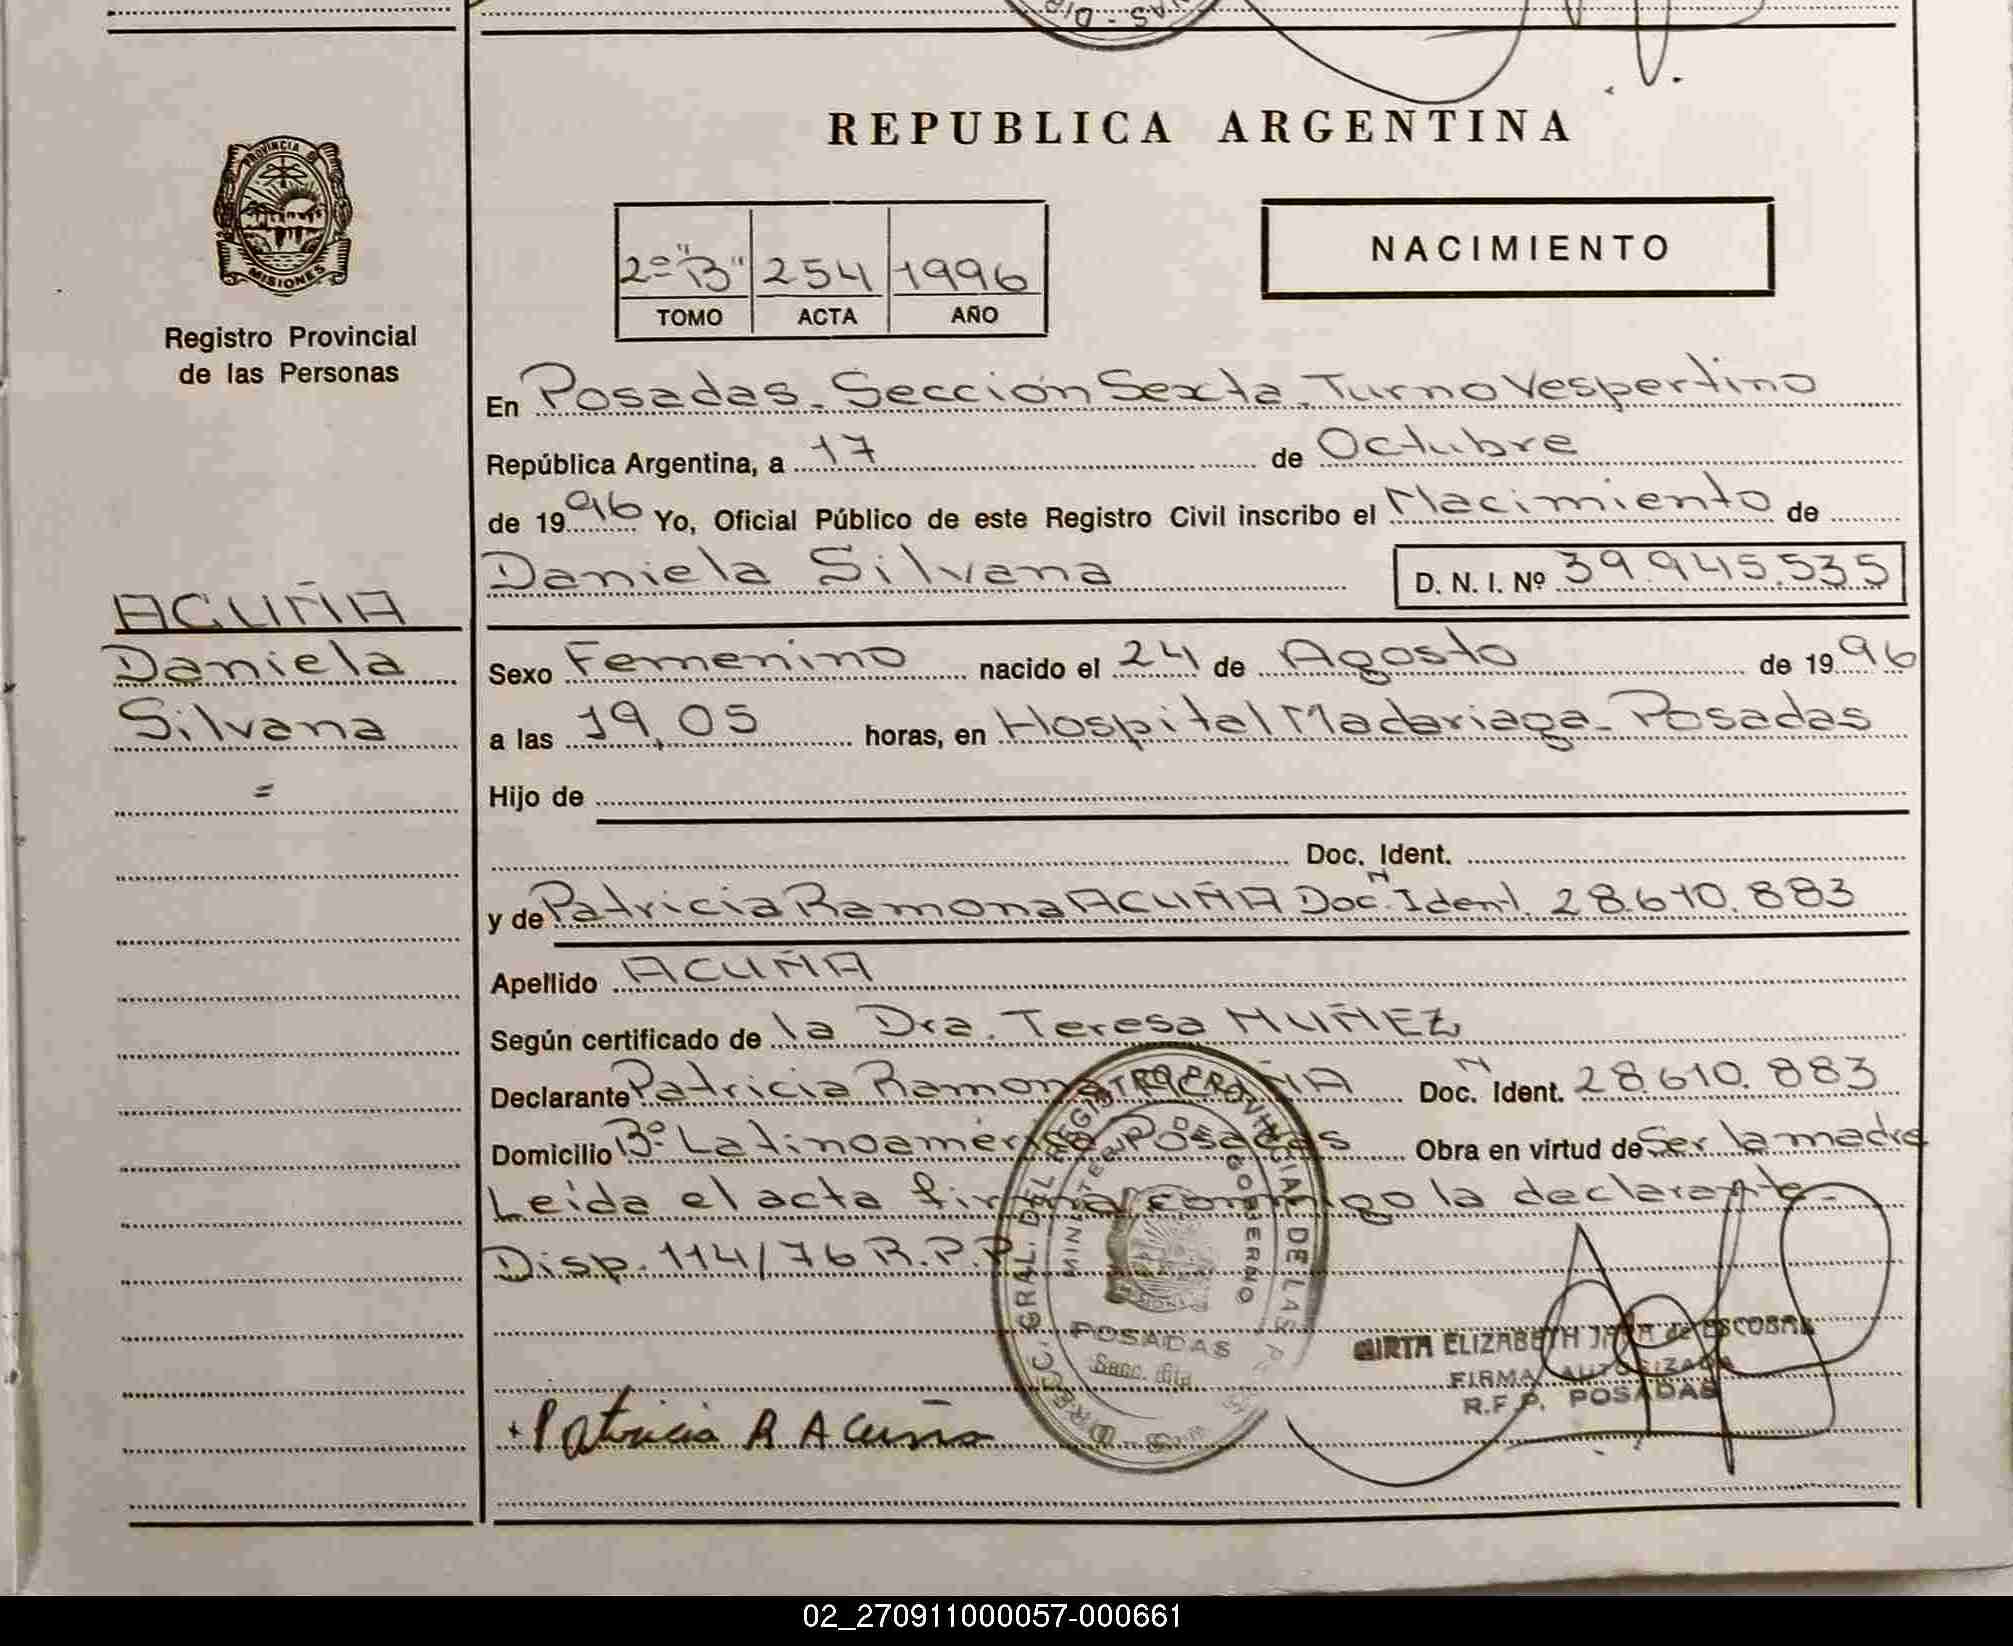 REPUBLICA ARGENTINA
PROVINCIA DE
MISIONES
Registro Provincial
de las Personas
2º "B" 254 1996
TOMO ACTA AÑO
NACIMIENTO
En Posadas. Sección Sexta. Turno Vespertino
República Argentina, a 17 de Octubre
de 1996 Yo, Oficial Público de este Registro Civil inscribo el Nacimiento de
Daniela Silvana D. N. I. Nº 39.945.535
ACUÑA
Daniela
Silvana
=
Sexo Femenino nacido el 24 de Agosto de 1996
a las 19,05 horas, en Hospital Madariaga - Posadas
Hijo de
Doc. Ident.
y de Patricia Ramona ACUÑA Doc. N Ident. 28.610.883
Apellido ACUÑA
Según certificado de la Dra. Teresa MUÑEZ
Declarante Patricia Ramona ACUÑA Doc. N Ident. 28.610.883
Domicilio Bº Latinoamérica Posadas Obra en virtud de Ser la madre
Leída el acta firma conmigo la declarante.
Disp. 114/76 R.P.P.
DIREC. GRAL. DEL REGISTRO PROVINCIAL DE LAS
MINISTERIO DE GOBIERNO
POSADAS
Secc. 6ta
MIRTA ELIZABETH JARA de ESCOBAR
FIRMA AUTORIZADA
R.F.P. POSADAS
Patricia R Acuña
02_270911000057-000661